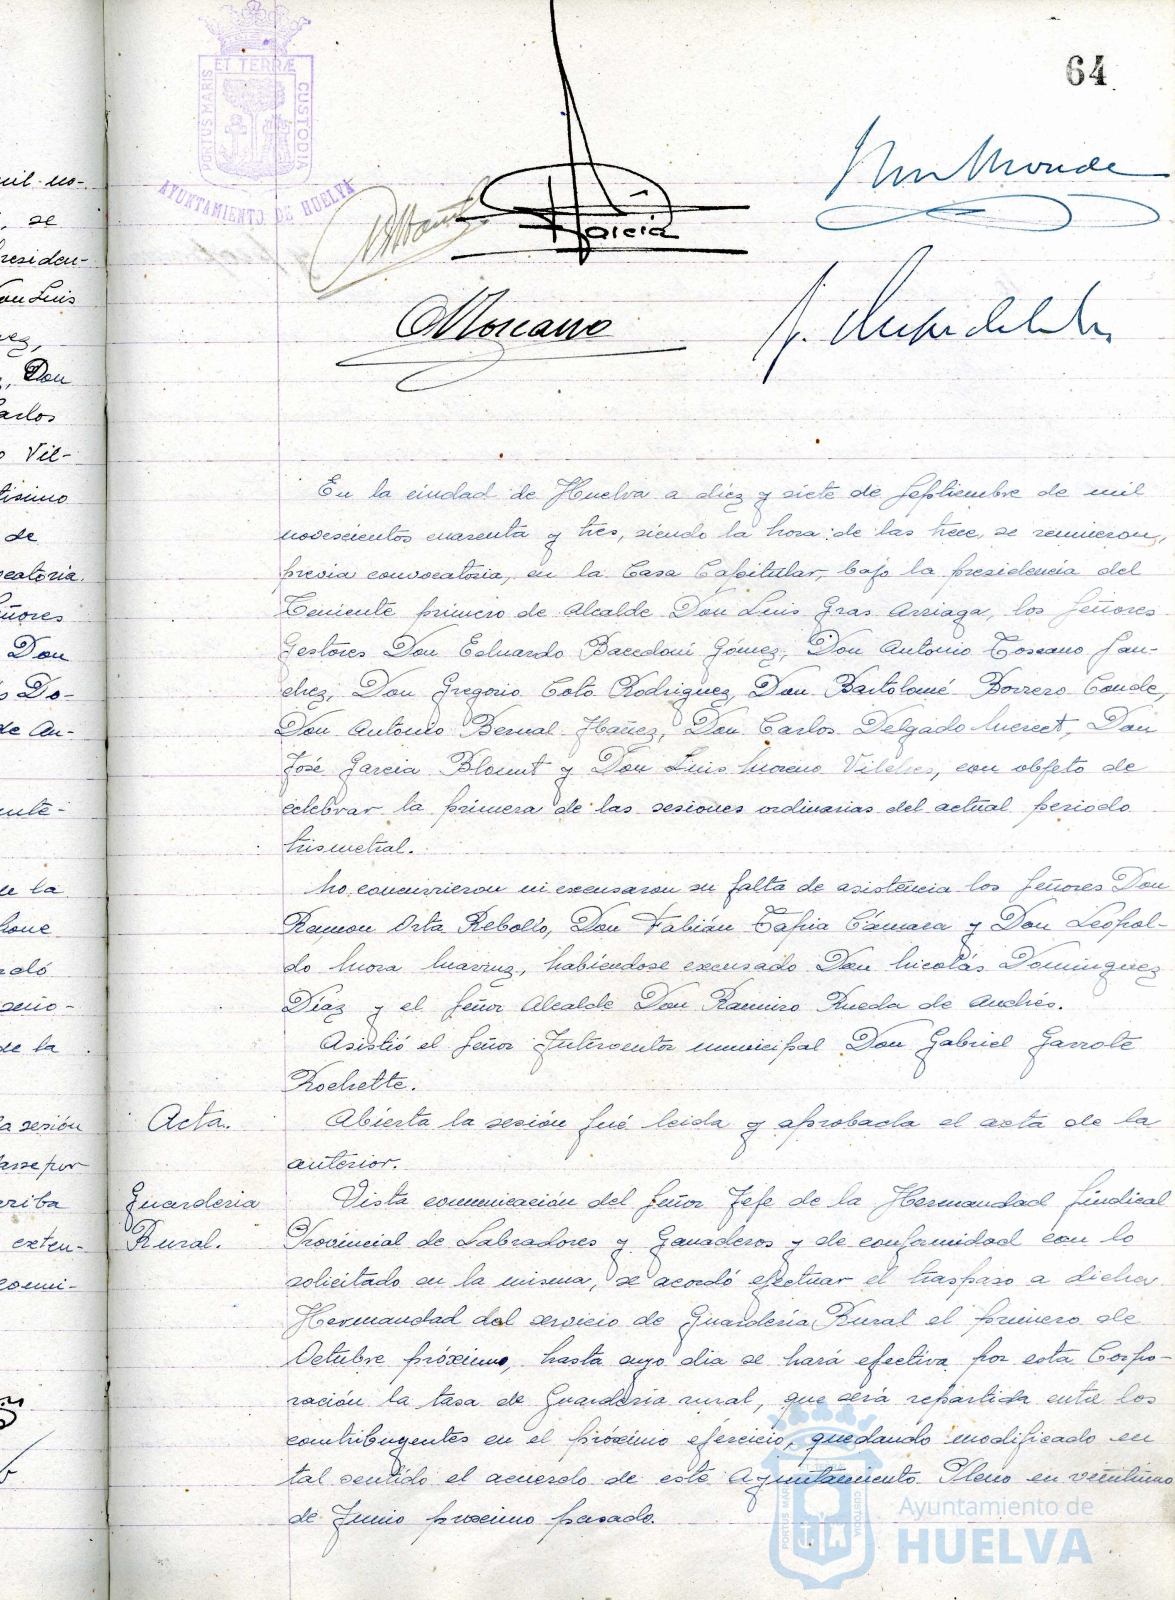 64
ET TERRÆ
PORTUS MARIS
CUSTODIA
AYUNTAMIENTO DE HUELVA
García
En la ciudad de Huelva a diez y siete de Septiembre de mil
novescientos cuarenta y tres, siendo la hora de las trece, se reunieron,
previa convocatoria, en la Casa Capitular, bajo la presidencia del
Teniente primero de Alcalde Don Luis Gras Arriaga, los Señores
Gestores Don Eduardo Bacedoni Gómez, Don Antonio Toscano San-
chez, Don Gregorio Coto Rodriguez, Don Bartolomé Borrero Conde,
Don Antonio Bernal Ibañez, Don Carlos Delgado Merect, Don
José Garcia Blount y Don Luis Moreno Vilches, con objeto de
celebrar la primera de las sesiones ordinarias del actual periodo
trismetral.
No concurrieron ni excusaron su falta de asistencia los Señores Don
Ramon Orta Rebollo, Don Fabián Tapia Cámara y Don Leopol-
do Mora habiéndose excusado Don Nicolás Dominguez
Díaz y el Señor Alcalde Don Ramiro Rueda de Andrés.
Asistió el Señor Interventor municipal Don Gabriel Garrote
Rochette.
Acta.
Abierta la sesión fué leida y aprobada el acta de la
anterior.
Guarderia
Rural.
Vista comunicación del Señor Jefe de la Hermandad Sindical
Provincial de Labradores y Ganaderos y de conformidad con lo
solicitado en la misma, se acordó efectuar el traspaso a dicha
Hermandad del servicio de Guardería Rural el primero de
Octubre próximo, hasta cuyo dia se hará efectiva por esta Corpo-
ración la tasa de Guardería rural, que será repartida entre los
contribuyentes en el próximo ejercicio, quedando modificado en
tal sentido el acuerdo de este Ayuntamiento Pleno en veintiuno
de Junio proximo pasado.
Ayuntamiento de
HUELVA